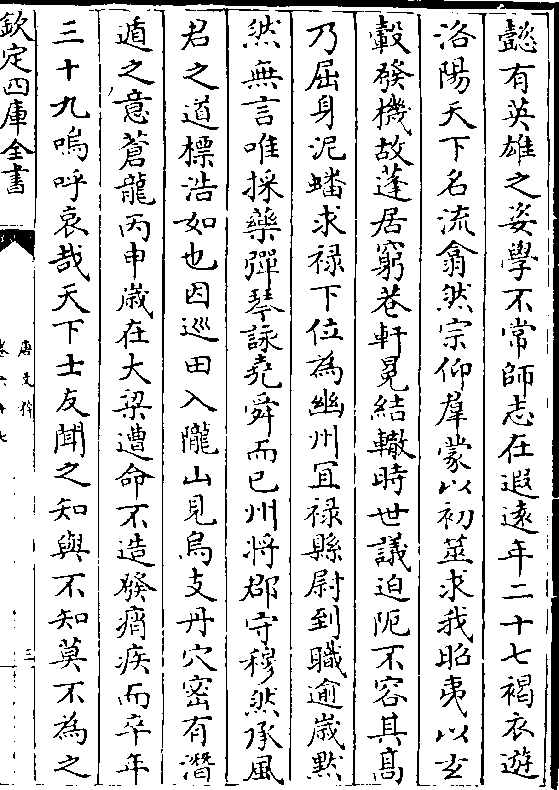 懿有英雄之姿學不常師志在遐遠年二十七褐衣遊
洛陽天下名流翕然宗仰羣蒙以初筮求我昭夷以玄
轂發機故蓬居窮巷軒冕結轍時世議迫阨不容其髙
乃屈身泥蟠求禄下位為幽州冝禄縣尉到職逾嵗黙
然無言唯採藥彈琴詠堯舜而已州将郡守穆然承風
君之道標浩如也因巡田入隴山見鳥支丹穴密有潛
遁之意蒼龍丙申嵗在大梁遭命不造發痟疾而卒年
三十九嗚呼哀哉天下士友聞之知與不知莫不為之
欽定四庫全書
唐文粹
卷六十七
三